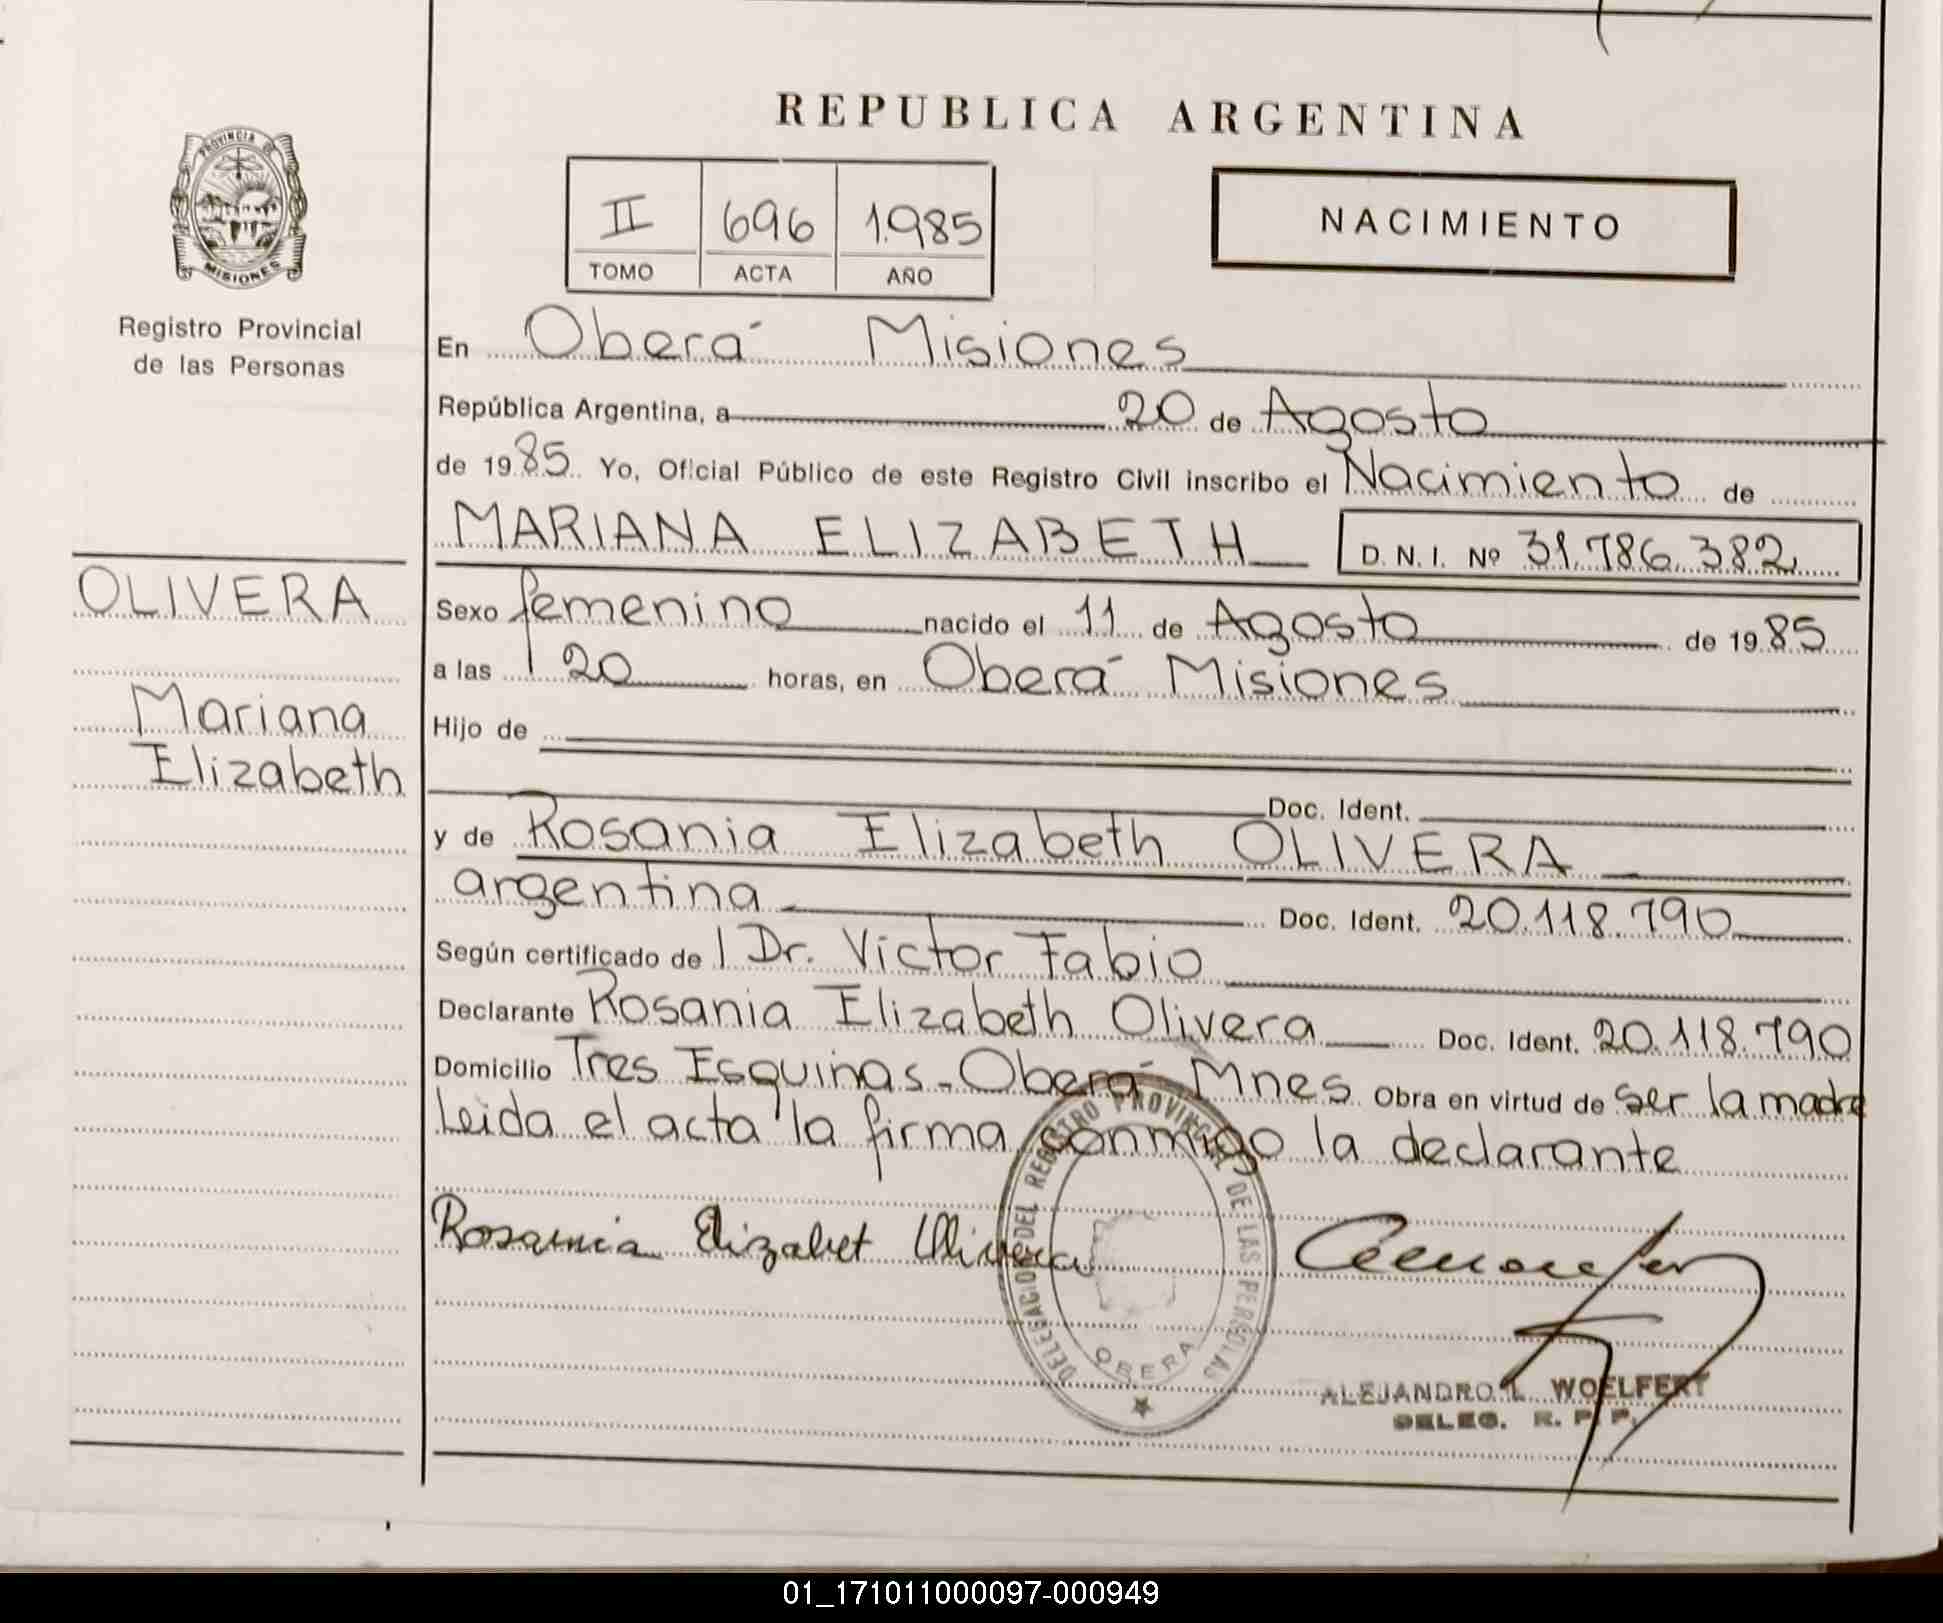 REPUBLICA ARGENTINA
PROVINCIA DE
MISIONES
Registro Provincial
de las Personas
II 696 1.985
TOMO ACTA AÑO
NACIMIENTO
En Oberá Misiones
República Argentina, a 20 de Agosto
de 1985 Yo, Oficial Público de este Registro Civil inscribo el Nacimiento de
MARIANA ELIZABETH D.N.I. Nº 31.786.382
OLIVERA
Mariana
Elizabeth
Sexo femenino nacido el 11 de Agosto de 1985
a las 20 horas, en Oberá Misiones
Hijo de
Doc. Ident.
y de Rosania Elizabeth OLIVERA
argentina Doc. Ident. 20.118.790
Según certificado de Dr. Victor Fabio
Declarante Rosania Elizabeth Olivera Doc. Ident. 20.118.790
Domicilio Tres Esquinas - Oberá Mnes Obra en virtud de ser la madre
Leida el acta la firma conmigo la declarante
Rosania Elizabet Olivera
DELEGACION DEL REGISTRO PROVINCIAL DE LAS PERSONAS
OBERA
ALEJANDRO L. WOELFERT
DELEG. R. P. P.
01_171011000097-000949